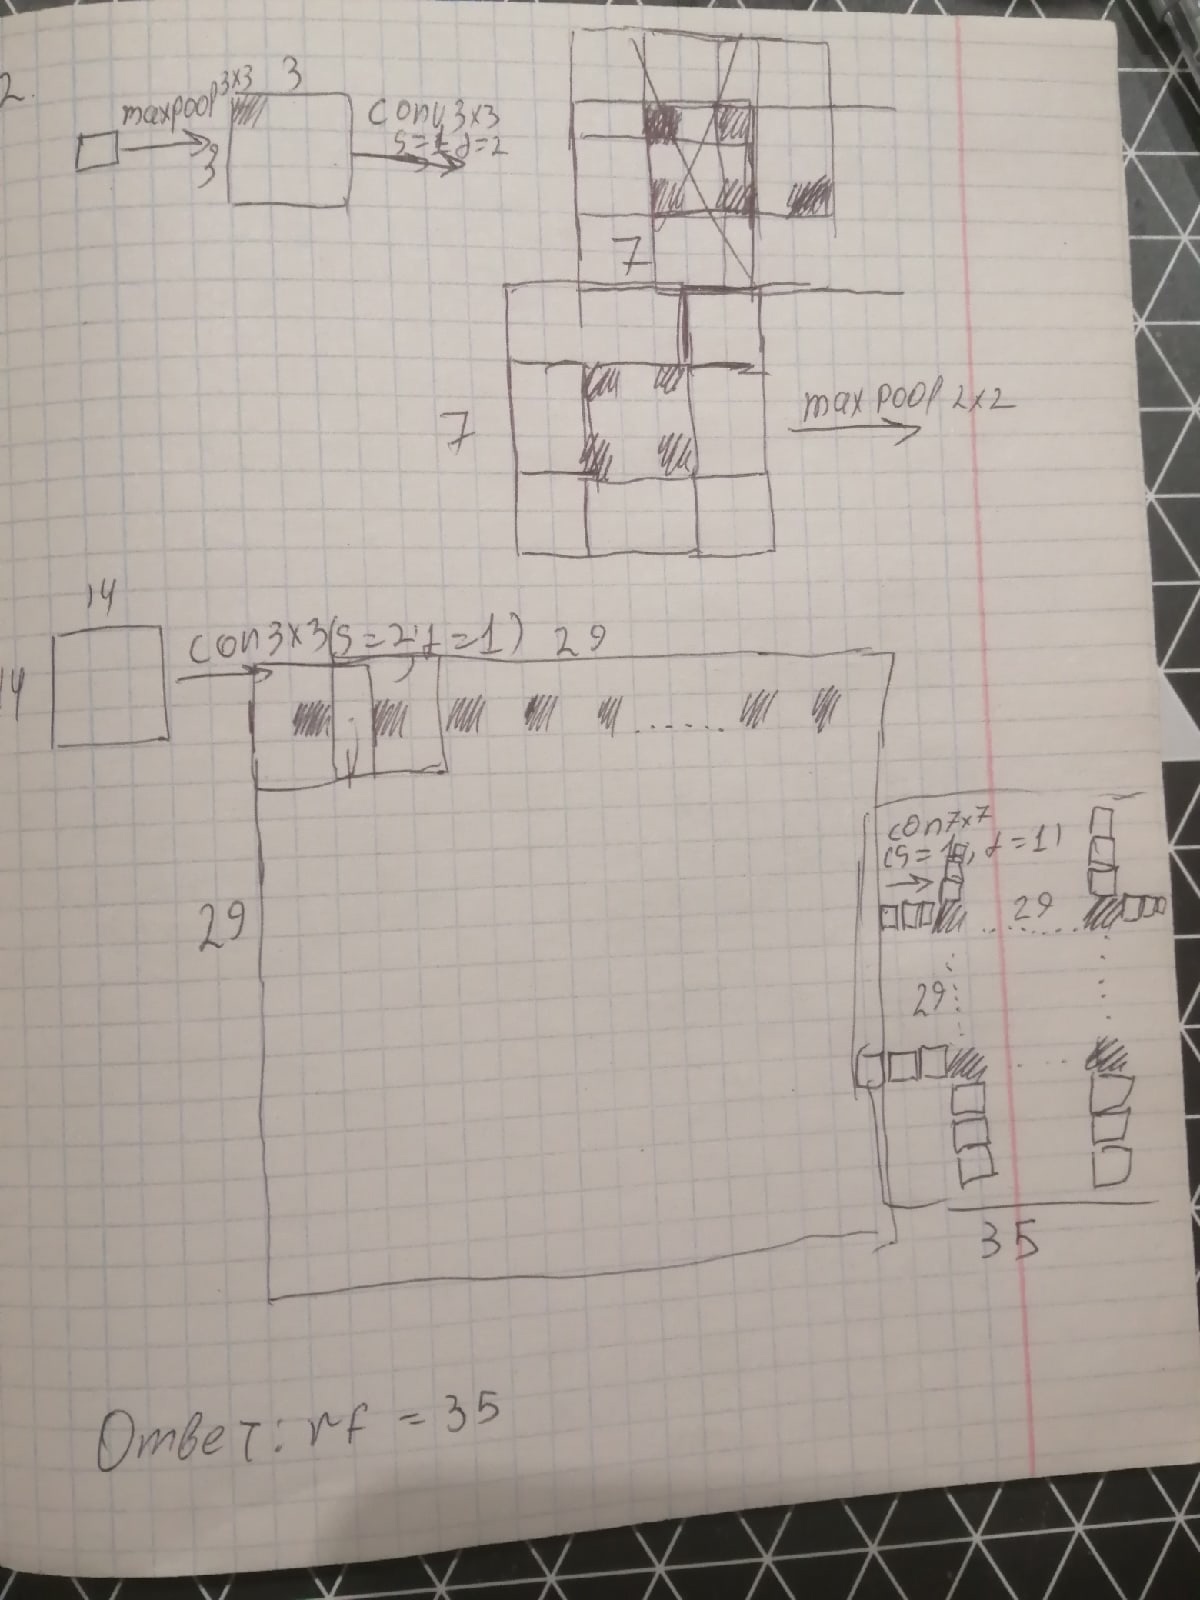 2.
maxpool 3×3
3
3
conv 3×3
s=1 d=2
7
7
maxpool 2×2
14
14
con 3×3(s=2, d=1)
29
29
con 7×7
(s=1, d=1)
29
29
35
Ответ: rf = 35